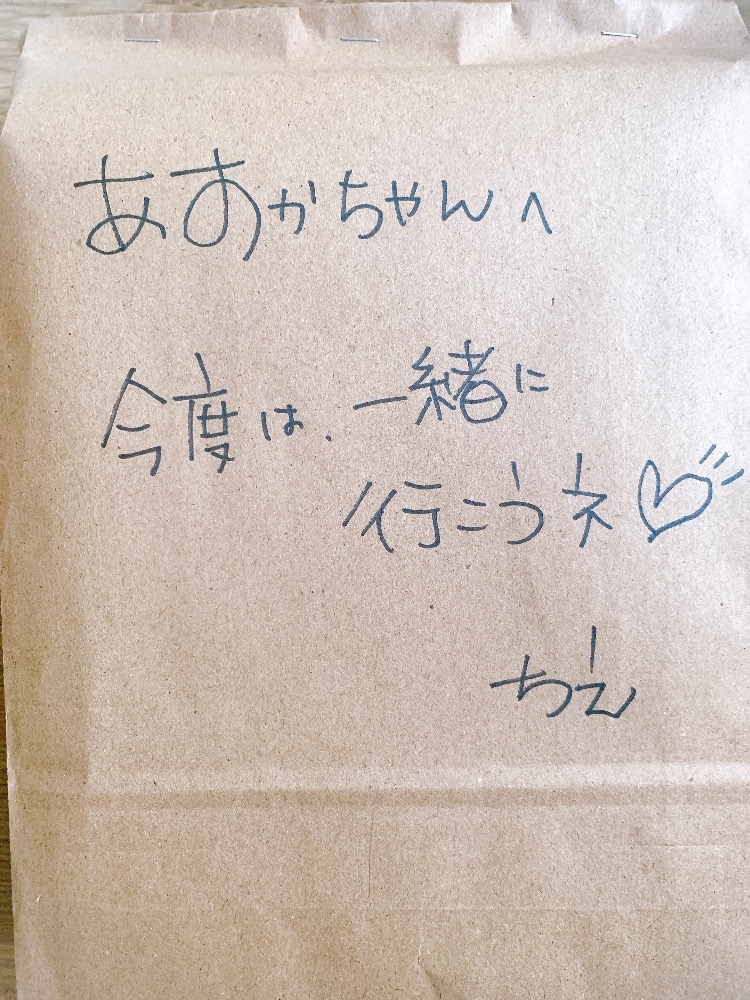 あすかちゃんへ
今度は、一緒に
行こうネ♡
ちえ